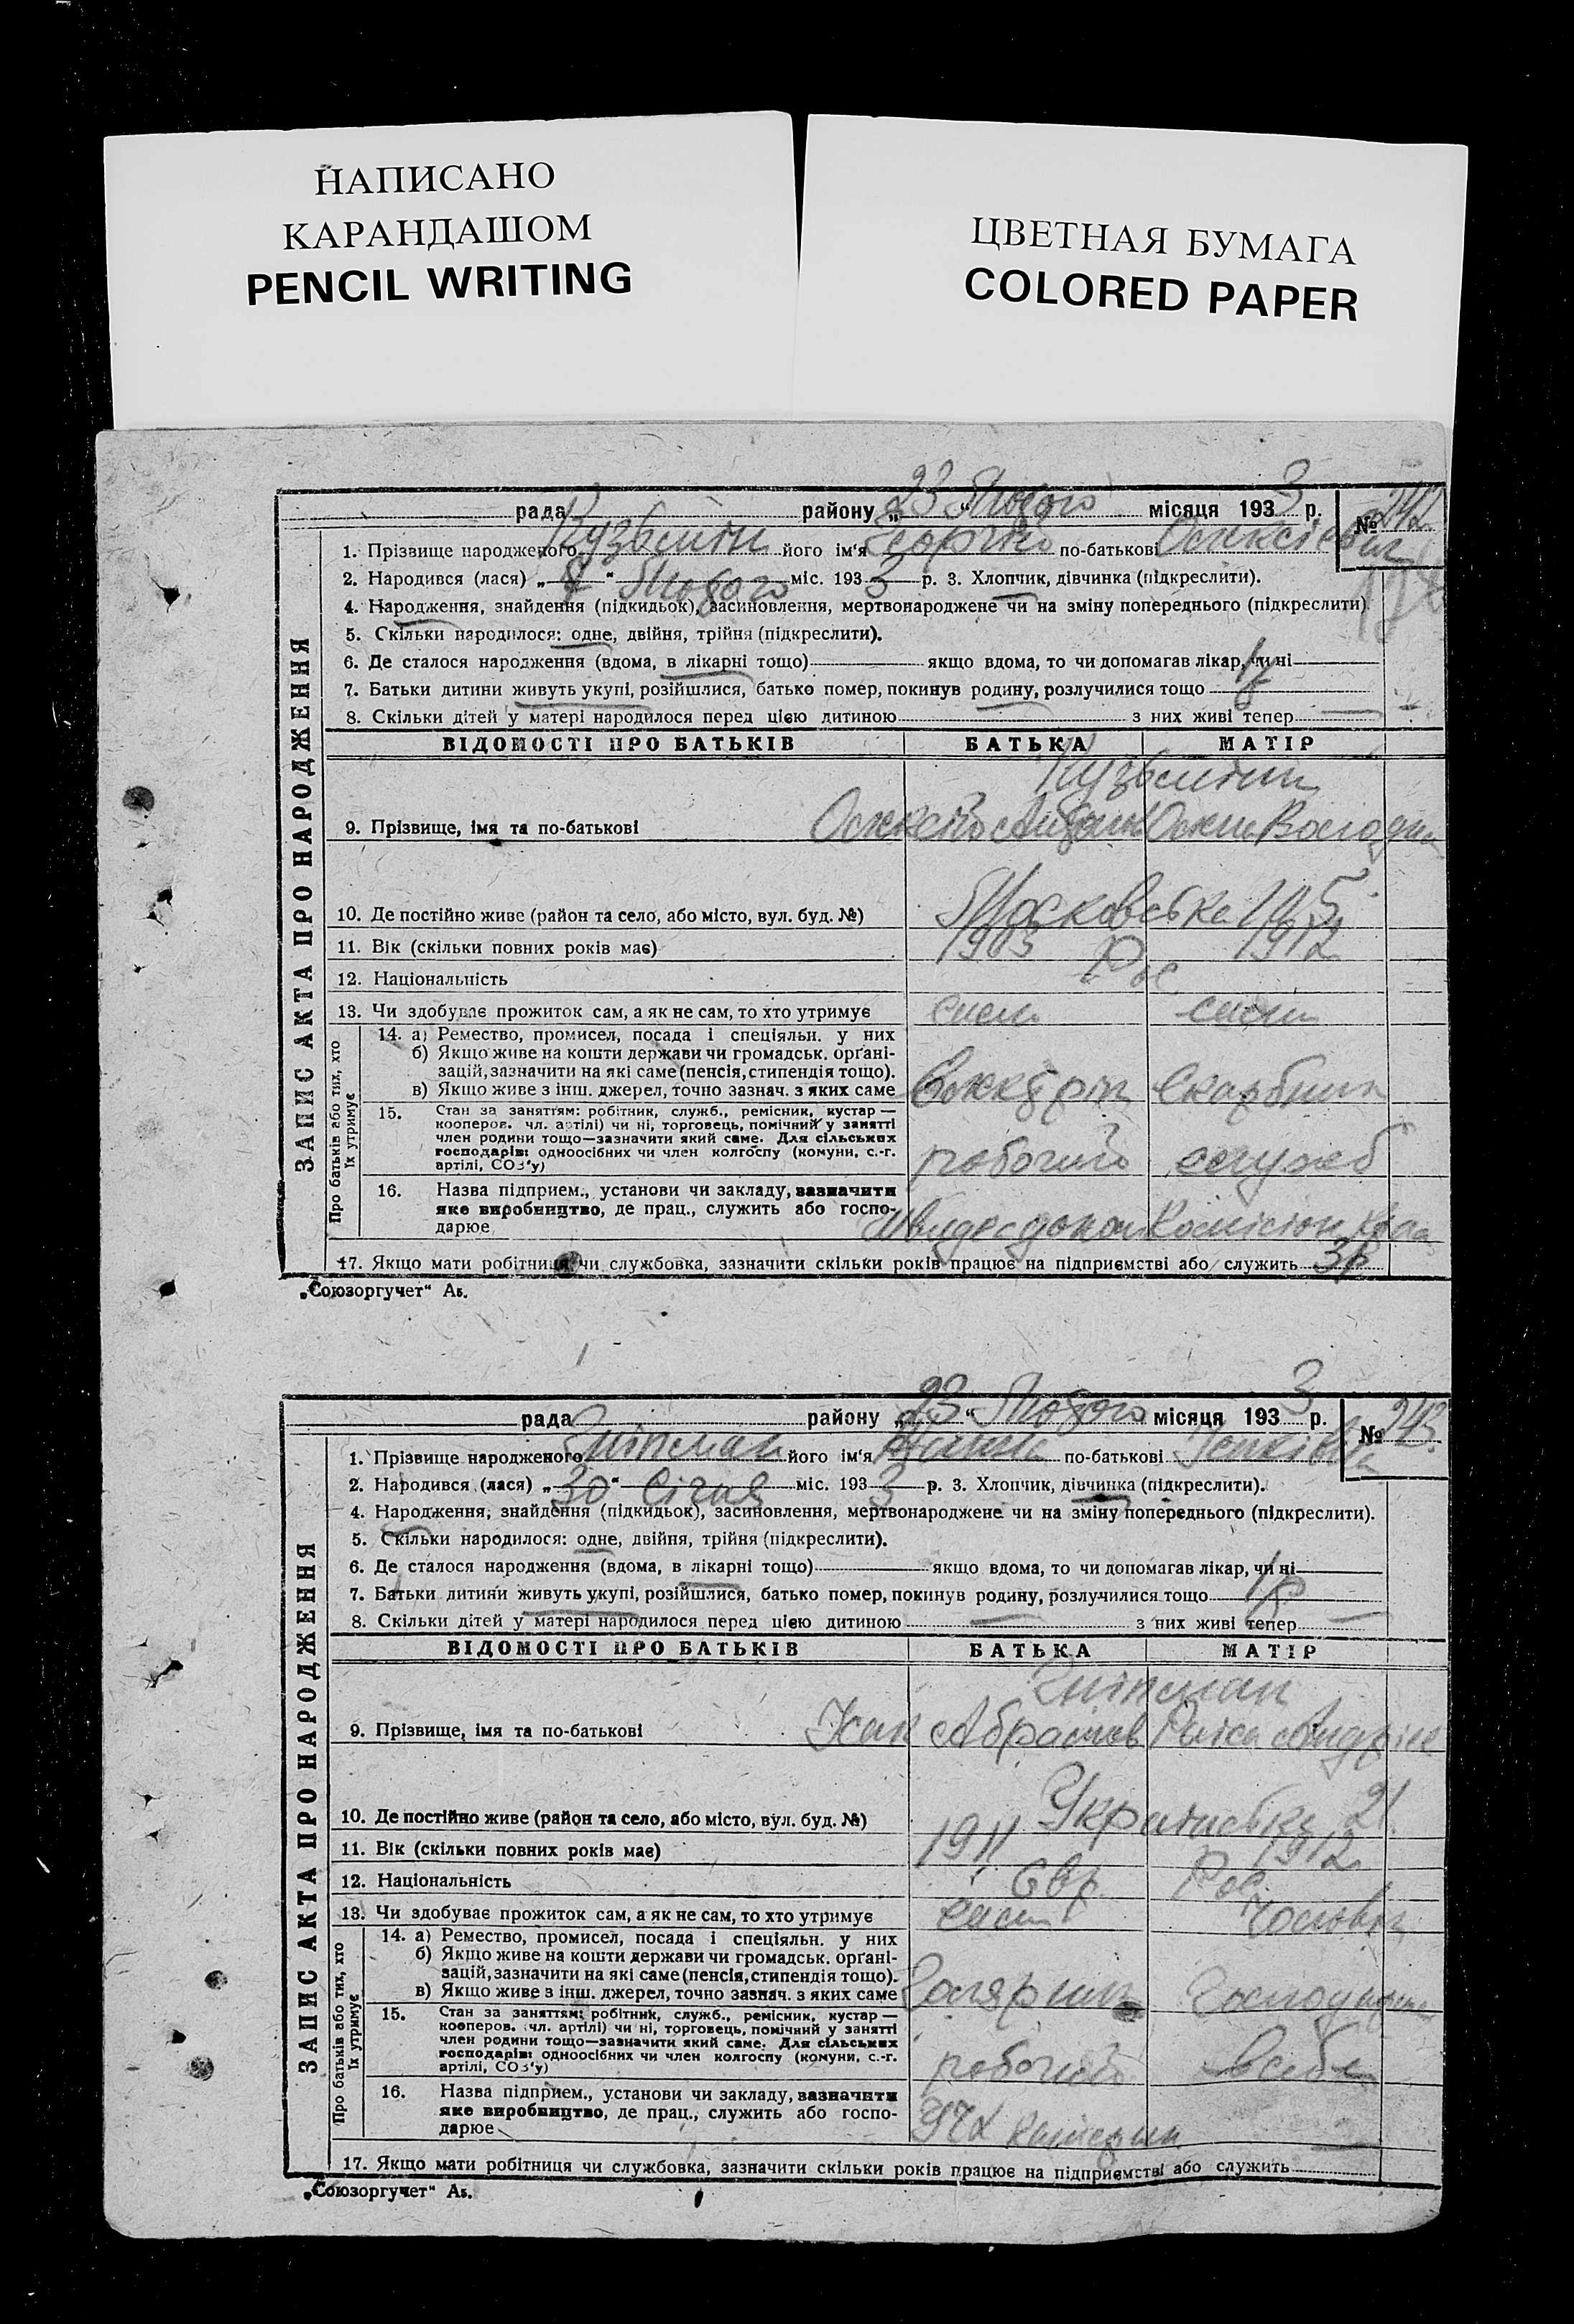 НАПИСАНО
КАРАНДАШОМ
PENCIL WRITING
ЦВЕТНАЯ БУМАГА
COLORED PAPER
рада района „23“ Лютого місяця 1933 р. № 242
1. Прізвище народженого Кузьмін його ім'я Георгій по-батькові Олексієвич
2. Народився (лася) „8“ Лютого міс. 1933 р. 3. Хлопчик, дівчинка (підкреслити).
4. Народження, знайдення (підкидьок), засиновлення, мертвонароджене чи на зміну попереднього (підкреслити).
5. Скільки народилося: одне, двійня, трійня (підкреслити).
6. Де сталося народження (вдома, в лікарні тощо) якщо вдома, то чи допомагав лікар, чи ні
7. Батьки дитини живуть укупі, розійшлися, батько помер, покинув родину, розлучилися тощо
8. Скільки дітей у матері народилося перед цією дитиною з них живі тепер
ВІДОМОСТІ ПРО БАТЬКІВ БАТЬКА МАТІР
Кузьміни
9. Прізвище, імя та по-батькові Олексій
10. Де постійно живе (район та село, або місто, вул. буд. №) Московська
11. Вік (скільки повних років має) 1903 1912
12. Національність Рос
13. Чи здобуває прожиток сам, а як не сам, то хто утримує сам сам
14. а) Ремество, промисел, посада і спеціяльн. у них
б) Якщо живе на кошти держави чи громадськ. орґані-
зацій, зазначити на які саме (пенсія, стипендія тощо).
в) Якщо живе з інш. джерел, точно зазнач. з яких саме
15. Стан за заняттям: робітник, служб., ремісник, кустар —
кооперов. чл. артілі) чи ні, торговець, помічний у занятті
член родини тощо—зазначити який саме. Для сільських
господарів: одноосібних чи член колгоспу (комуни, с.-г.
артілі, СОЗ'у) робочий служб
16. Назва підприєм., установи чи закладу, зазначити
яке виробництво, де прац., служить або госпо-
дарює
17. Якщо мати робітниця чи службовка, зазначити скільки років працює на підприємстві або служить 3р
„Союзоргучет“ Аб.
ЗАПИС АКТА ПРО НАРОДЖЕННЯ
Про батьків або тих, хто
їх утримує
рада району „23“ Лютого місяця 1933 р. № 243
1. Прізвище народженого його ім'я по-батькові
2. Народився (лася) „30“ Січня міс. 1933 р. 3. Хлопчик, дівчинка (підкреслити).
4. Народження, знайдення (підкидьок), засиновлення, мертвонароджене чи на зміну попереднього (підкреслити).
5. Скільки народилося: одне, двійня, трійня (підкреслити).
6. Де сталося народження (вдома, в лікарні тощо) якщо вдома, то чи допомагав лікар, чи ні
7. Батьки дитини живуть укупі, розійшлися, батько помер, покинув родину, розлучилися тощо
8. Скільки дітей у матері народилося перед цією дитиною з них живі тепер
ВІДОМОСТІ ПРО БАТЬКІВ БАТЬКА МАТІР
9. Прізвище, імя та по-батькові Абрамов Раїса
10. Де постійно живе (район та село, або місто, вул. буд. №) Українська 21
11. Вік (скільки повних років має) 1911 1912
12. Національність Євр Рос
13. Чи здобуває прожиток сам, а як не сам, то хто утримує сам
14. а) Ремество, промисел, посада і спеціяльн. у них
б) Якщо живе на кошти держави чи громадськ. орґані-
зацій, зазначити на які саме (пенсія, стипендія тощо).
в) Якщо живе з інш. джерел, точно зазнач. з яких саме
15. Стан за заняттям: робітник, служб., ремісник, кустар —
кооперов. чл. артілі) чи ні, торговець, помічний у занятті
член родини тощо—зазначити який саме. Для сільських
господарів: одноосібних чи член колгоспу (комуни, с.-г.
артілі, СОЗ'у) робочий
16. Назва підприєм., установи чи закладу, зазначити
яке виробництво, де прац., служить або госпо-
дарює
17. Якщо мати робітниця чи службовка, зазначити скільки років працює на підприємстві або служить
„Союзоргучет“ Аб.
ЗАПИС АКТА ПРО НАРОДЖЕННЯ
Про батьків або тих, хто
їх утримує